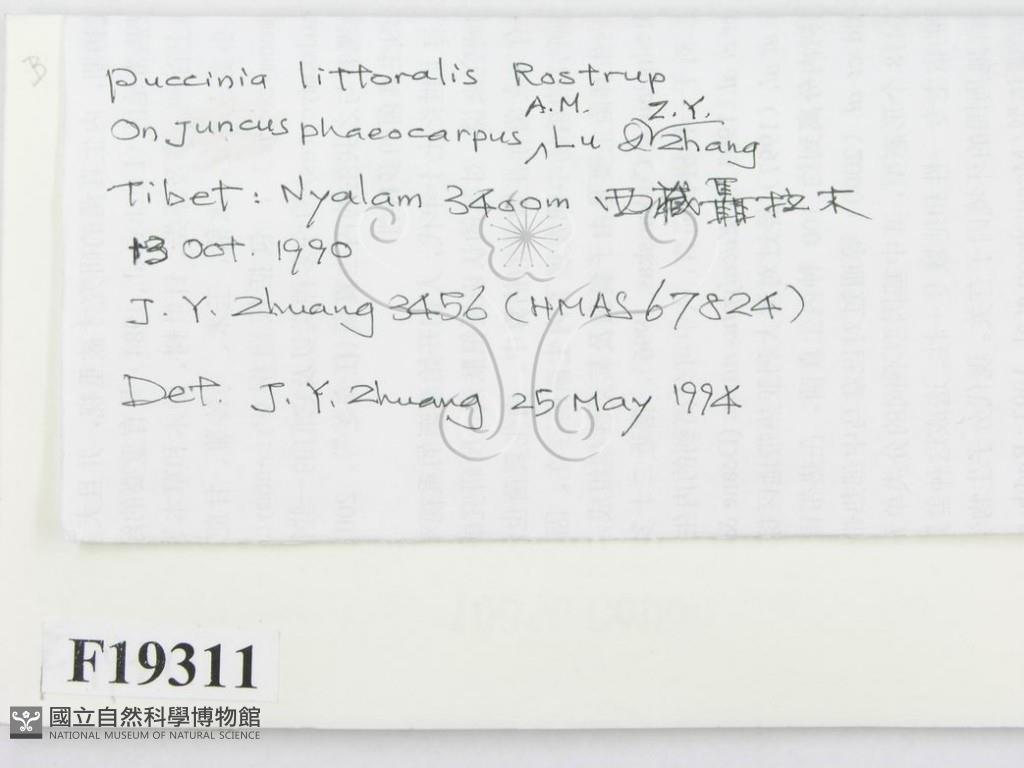 B
Puccinia littoralis Rostrup
On Juncus phaeocarpus A.M. Lu & Z.Y. Zhang
Tibet: Nyalam 3400m 西藏聶拉木
13 Oct. 1990
J. Y. Zhuang 3456 (HMAS 67824)
Det. J. Y. Zhuang 25 May 1994
F19311
國立自然科學博物館
NATIONAL MUSEUM OF NATURAL SCIENCE